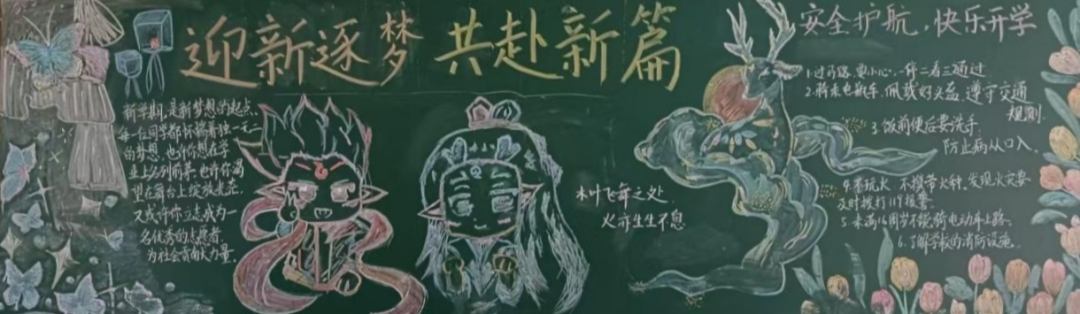 迎新逐梦 共赴新篇
新学期,是新梦想的起点、
每一位同学都怀揣着独一无二
的梦想,也许你想在学
业上名列前茅,也许你渴
望在舞台上绽放光芒,
又或许你立志成为一
名优秀的志愿者,
为社会贡献力量。
木叶飞舞之处
火亦生生不息
安全护航,快乐开学
1.过马路,要小心,一停二看三通过
2.骑乘电动车,佩戴好头盔,遵守交通
规则.
3.饭前便后要洗手,
防止病从口入,
4.不玩火 不携带火种,发现火灾要
及时拨打119报警.
5.未满16周岁不能骑电动车上路.
6.了解学校的消防设施.